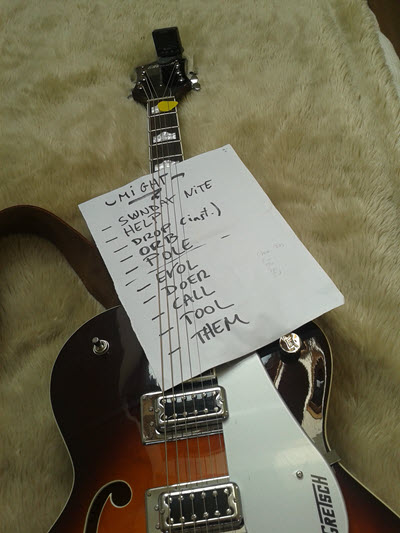 MIGHT
- SUNDAY NITE
- HELP
- DROP (inst.)
- ORB
- POLE
- EVOL
- DOER
- CALL
- TOOL
- THEM
GRETSCH